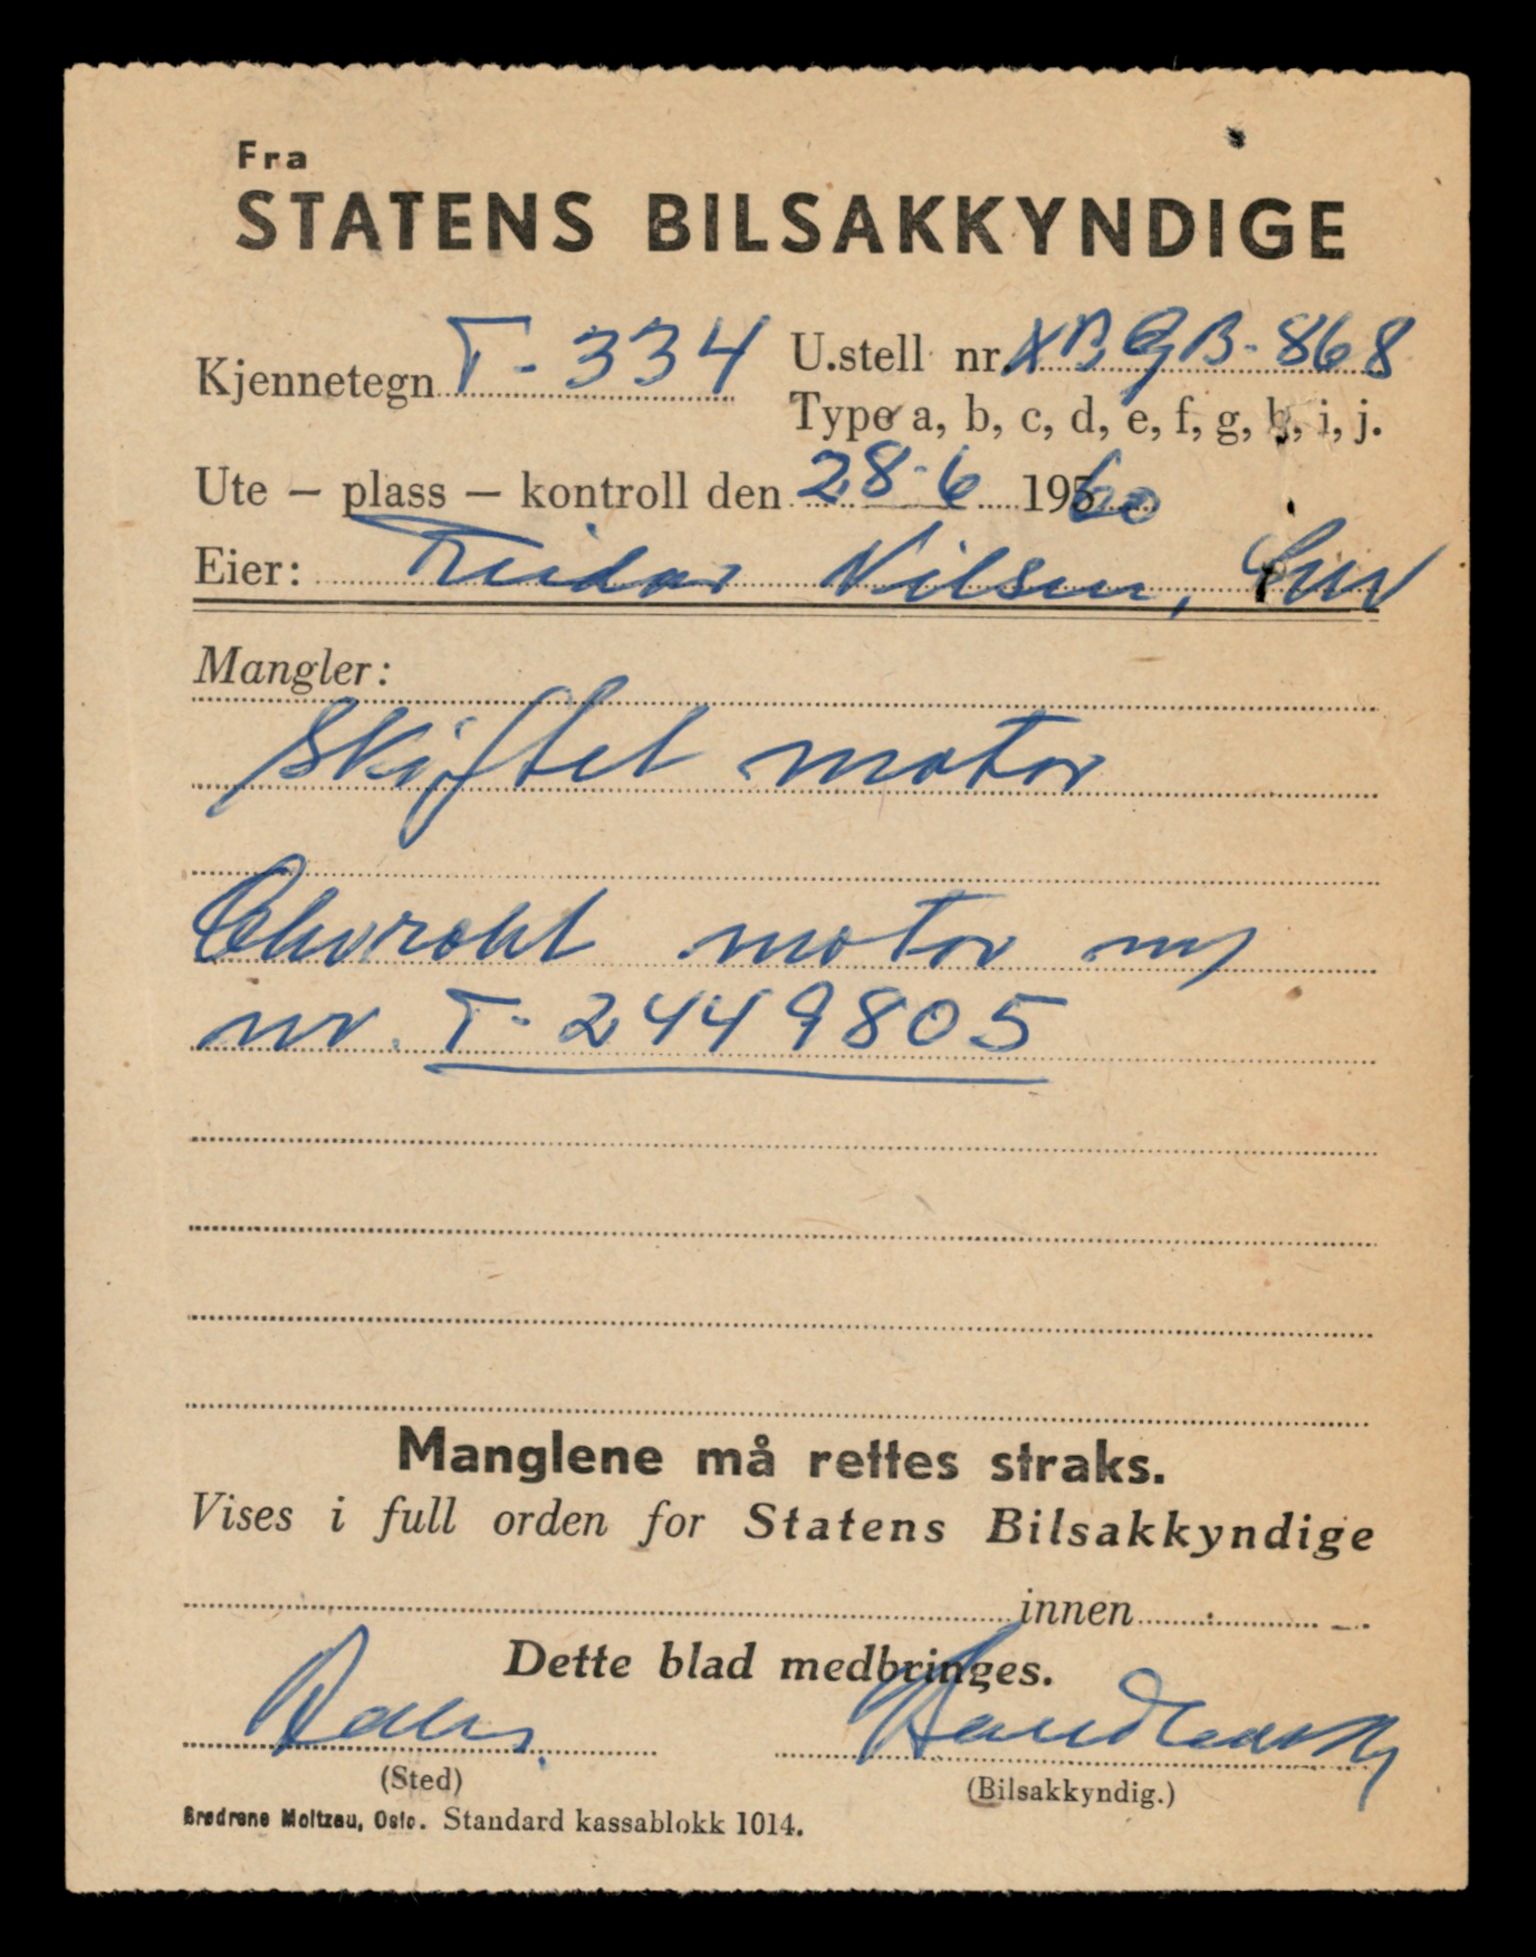 Fra
STATENS BILSAKKYNDIGE
Kjennetegn T-334 U.stell nr. XBGB-868
Type a, b, c, d, e, f, g, h, i, j.
Ute – plass – kontroll den 28-6 1960
Eier: Nilsen,
Mangler:
Skiftet motor
Chevrolet motor ny
nr. T-2449805
Manglene må rettes straks.
Vises i full orden for Statens Bilsakkyndige
innen
Dette blad medbringes.
(Sted)
(Bilsakkyndig.)
Brødrene Moltzau, Oslo. Standard kassablokk 1014.